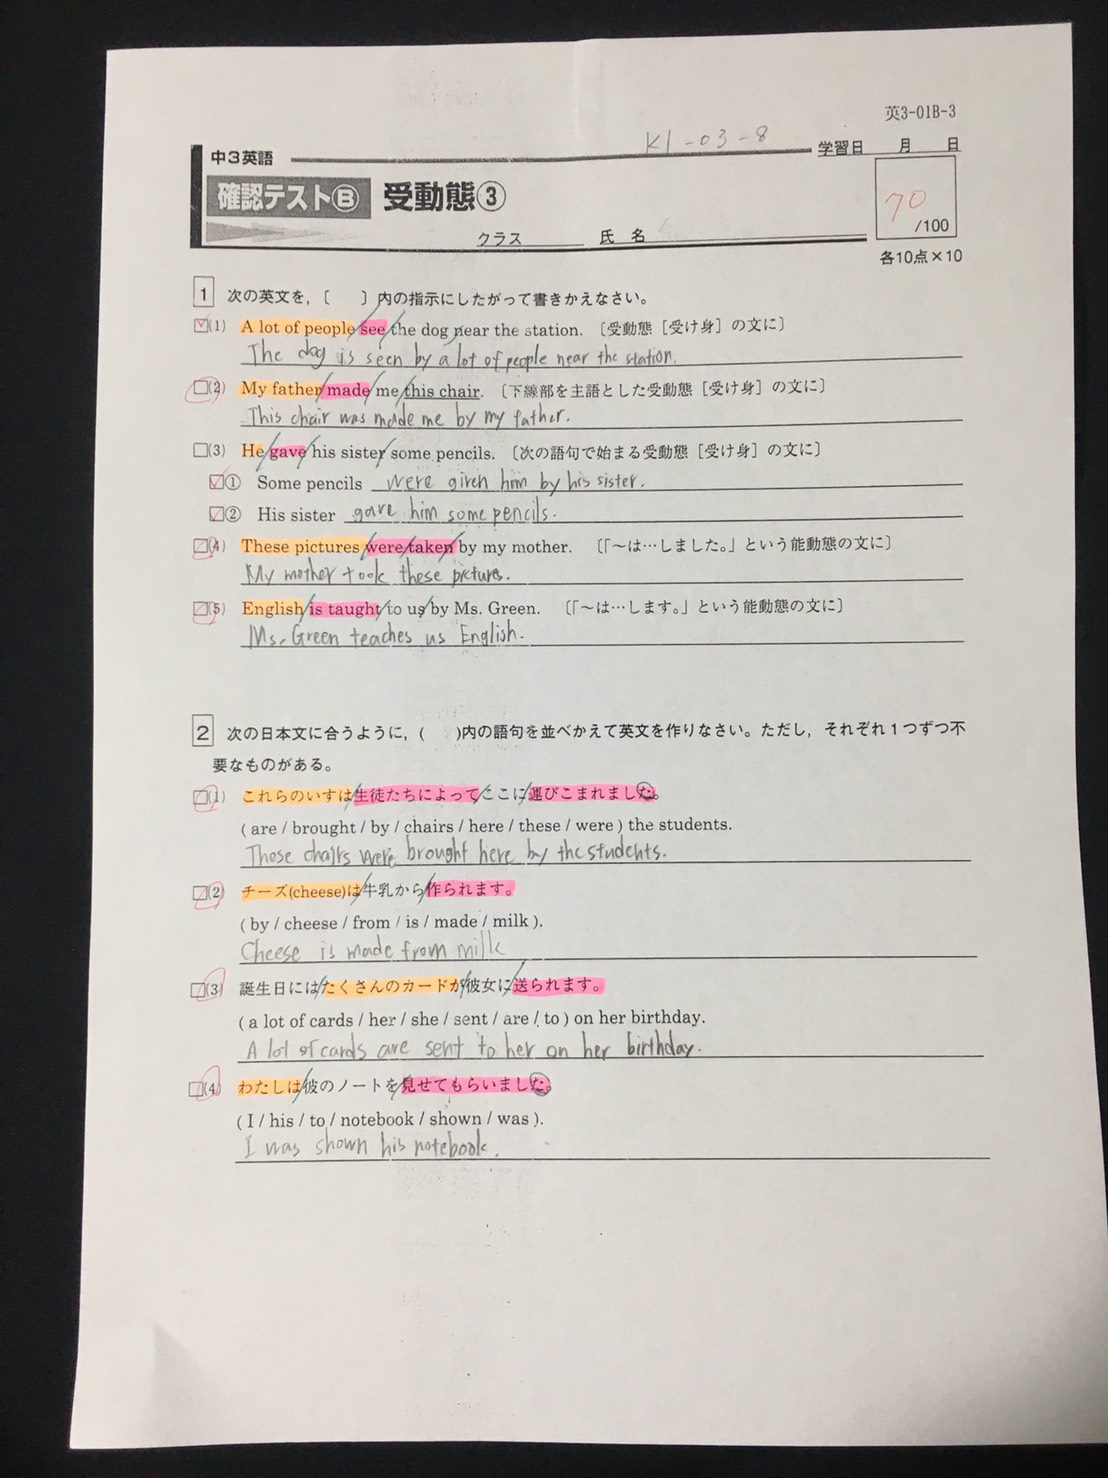 英3-01B-3
K1-03-8
中3英語
学習日 月 日
確認テストB 受動態③
70
/100
クラス 氏名
各10点×10
1 次の英文を,〔 〕内の指示にしたがって書きかえなさい。
(1) A lot of people see the dog near the station. 〔受動態[受け身]の文に〕
The dog is seen by a lot of people near the station.
(2) My father made me this chair. 〔下線部を主語とした受動態[受け身]の文に〕
This chair was made me by my father.
(3) He gave his sister some pencils. 〔次の語句で始まる受動態[受け身]の文に〕
① Some pencils were given him by his sister.
② His sister gave him some pencils.
(4) These pictures were taken by my mother. 〔「～は…しました。」という能動態の文に〕
My mother took these pictures.
(5) English is taught to us by Ms. Green. 〔「～は…します。」という能動態の文に〕
Ms. Green teaches us English.
2 次の日本文に合うように,( )内の語句を並べかえて英文を作りなさい。ただし,それぞれ1つずつ不
要なものがある。
(1) これらのいすは生徒たちによってここに運びこまれました。
( are / brought / by / chairs / here / these / were ) the students.
These chairs were brought here by the students.
(2) チーズ(cheese)は牛乳から作られます。
( by / cheese / from / is / made / milk ).
Cheese is made from milk
(3) 誕生日にはたくさんのカードが彼女に送られます。
( a lot of cards / her / she / sent / are / to ) on her birthday.
A lot of cards are sent to her on her birthday.
(4) わたしは彼のノートを見せてもらいました。
( I / his / to / notebook / shown / was ).
I was shown his notebook.